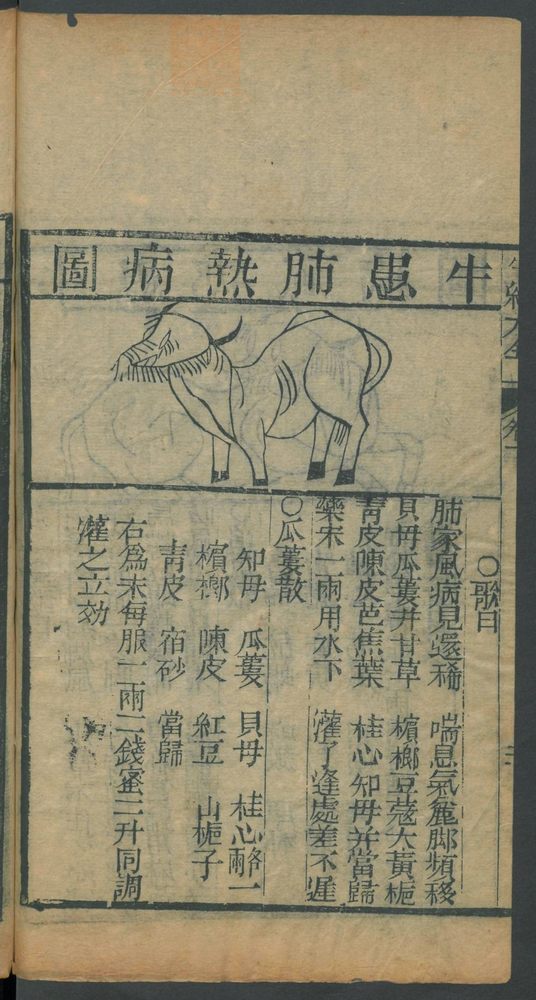 牛患肺熱病圖
○歌曰
肺家風病見還稀　喘息氣麄脚頻移
貝母瓜蔞并甘草　檳榔豆蔻大黃梔
青皮陳皮芭焦葉　桂心知母并當歸
藥末一兩用水下　灌了逢處差不遲
○瓜蔞散
知母　瓜蔞　貝母　桂心各一兩
檳榔　陳皮　紅豆　山梔子
青皮　宿砂　當歸
右爲末每服一兩二錢蜜二升同調
灌之立効